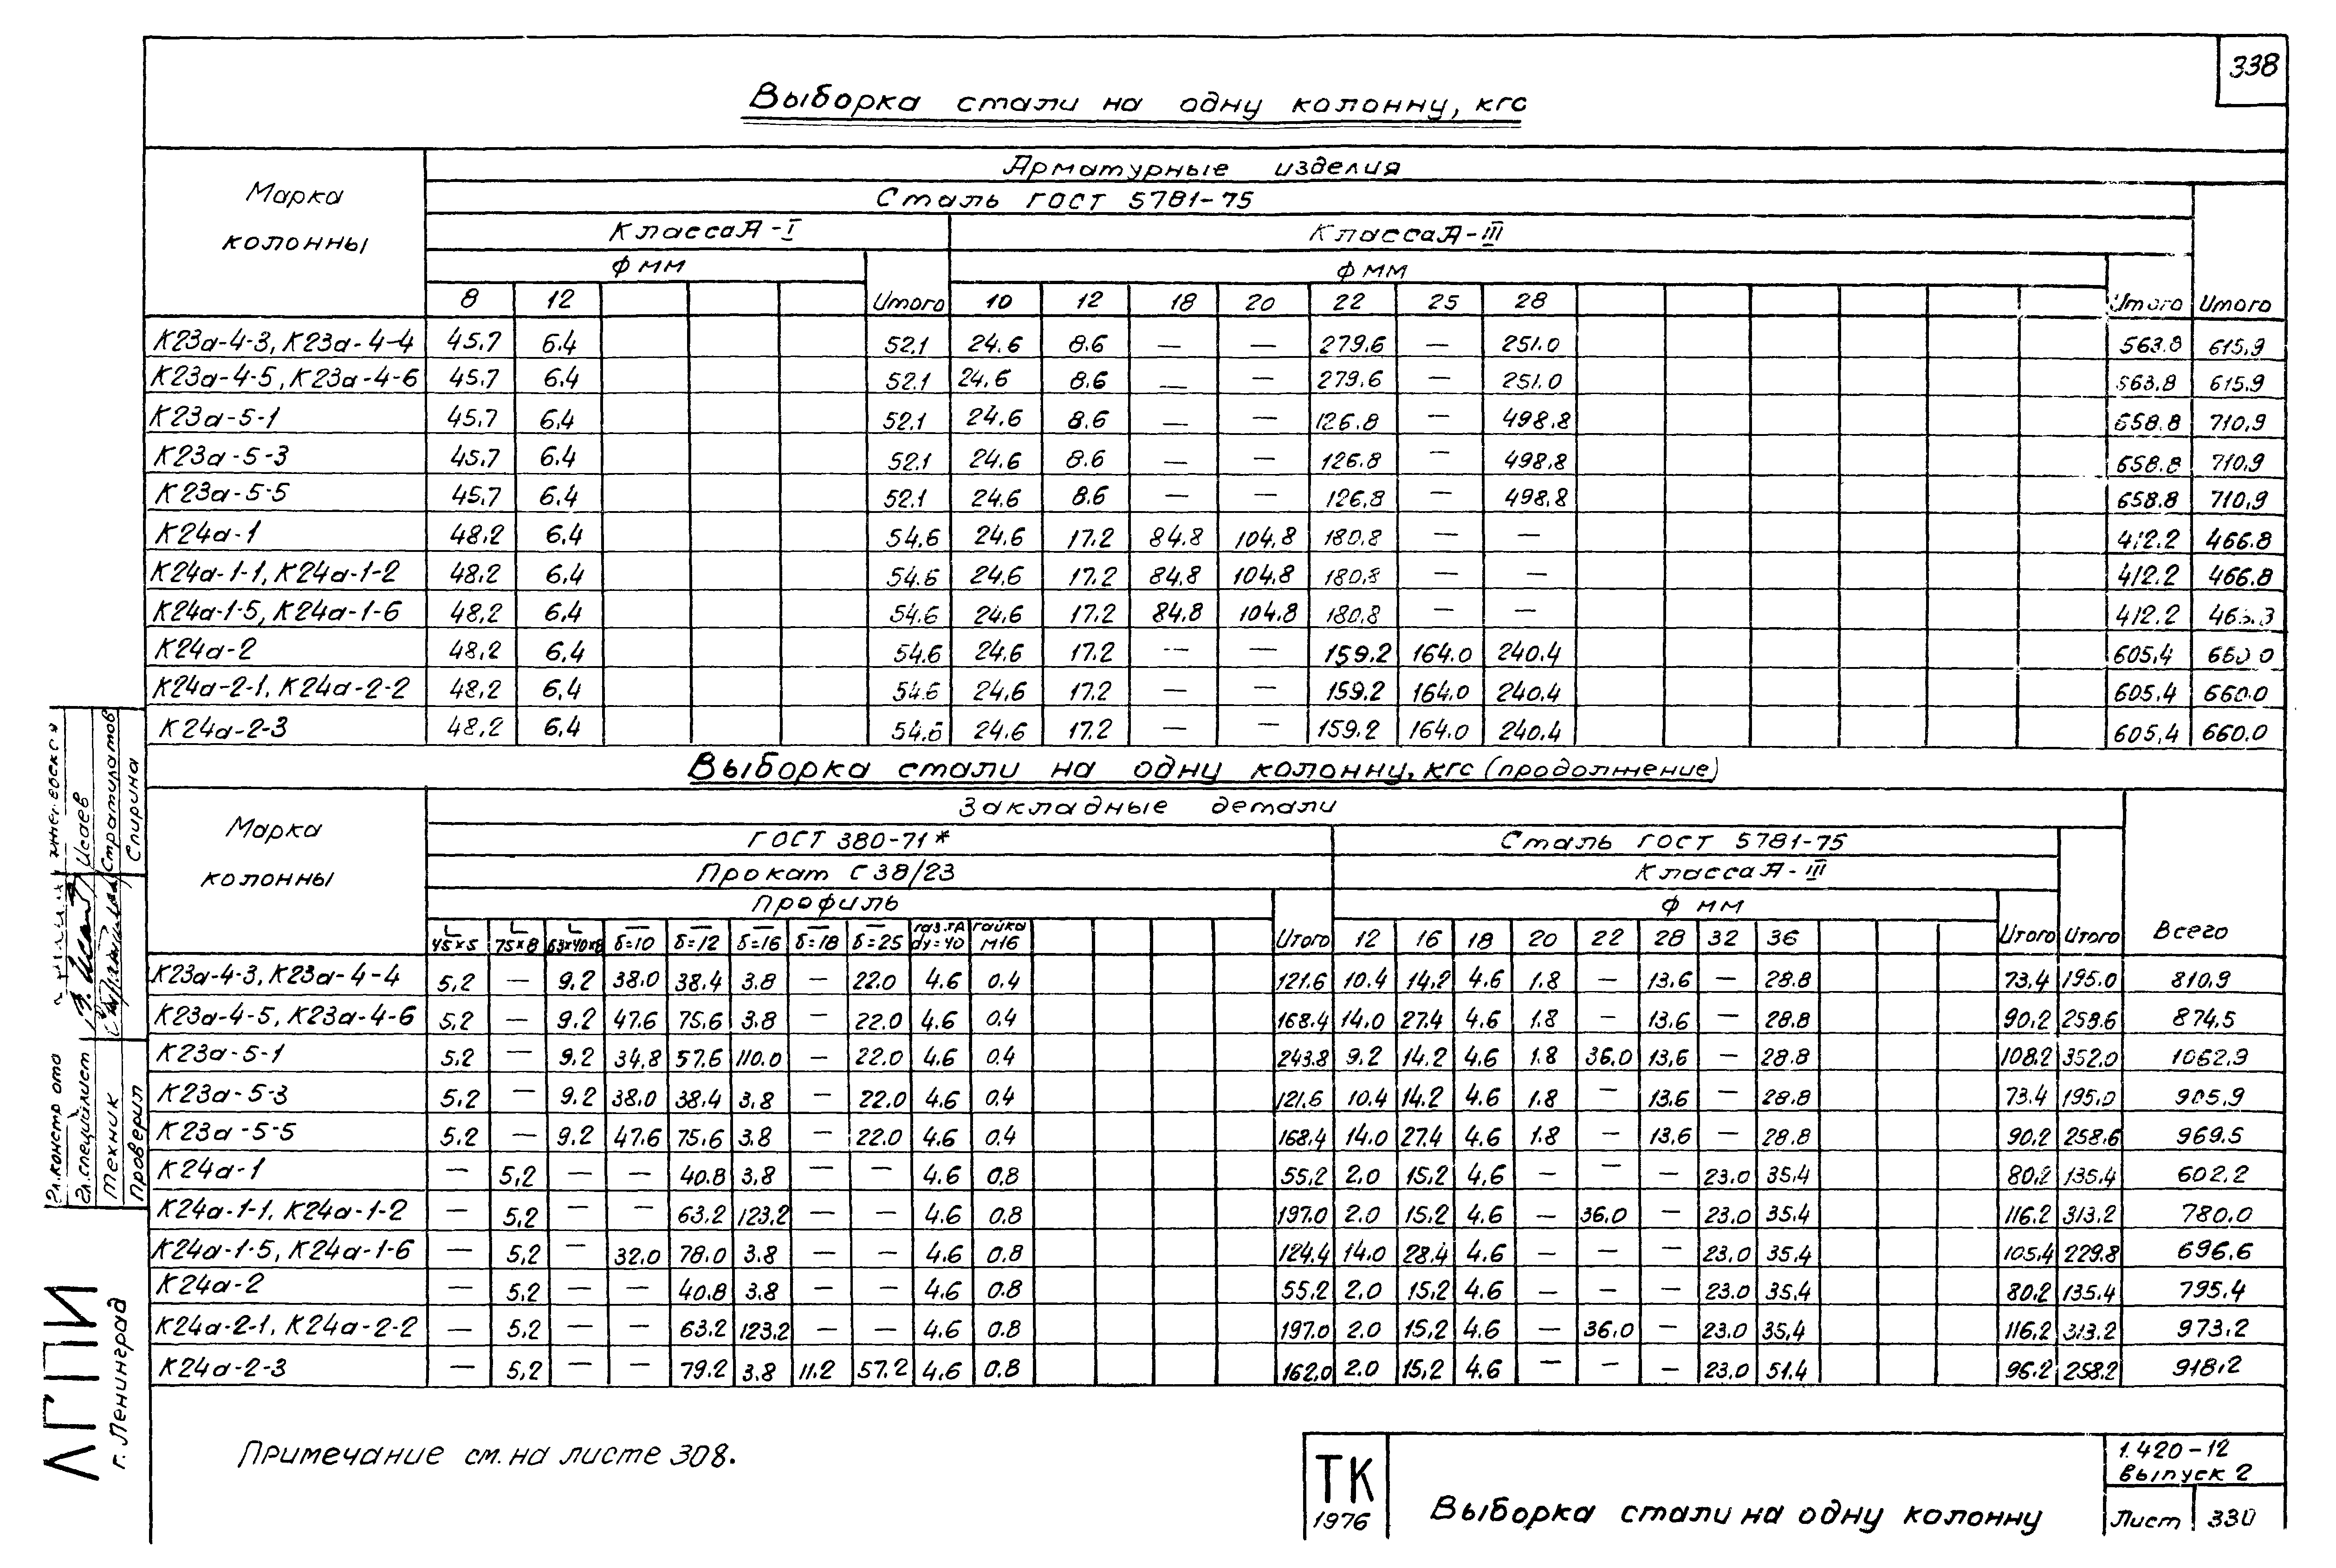 338
Выборка стали на одну колонну, кгс
Марка колонны
Арматурные изделия
Сталь ГОСТ 5781-75
Класса А-I Класса А-III
Ф мм Ф мм
8 12 Итого 10 12 18 20 22 25 28 Итого Итого
К23а-4-3, К23а-4-4 45.7 6.4 52.1 24.6 8.6 — — 279.6 — 251.0 563.8 615.9
К23а-4-5, К23а-4-6 45.7 6.4 52.1 24.6 8.6 — — 279.6 — 251.0 563.8 615.9
К23а-5-1 45.7 6.4 52.1 24.6 8.6 — — 126.8 — 498.8 658.8 710.9
К23а-5-3 45.7 6.4 52.1 24.6 8.6 — — 126.8 — 498.8 658.8 710.9
К23а-5-5 45.7 6.4 52.1 24.6 8.6 — — 126.8 — 498.8 658.8 710.9
К24а-1 48.2 6.4 54.6 24.6 17.2 84.8 104.8 180.8 — — 412.2 466.8
К24а-1-1, К24а-1-2 48.2 6.4 54.6 24.6 17.2 84.8 104.8 180.8 — — 412.2 466.8
К24а-1-5, К24а-1-6 48.2 6.4 54.6 24.6 17.2 84.8 104.8 180.8 — — 412.2
К24а-2 48.2 6.4 54.6 24.6 17.2 — — 159.2 164.0 240.4 605.4 660.0
К24а-2-1, К24а-2-2 48.2 6.4 54.6 24.6 17.2 — — 159.2 164.0 240.4 605.4 660.0
К24а-2-3 48.2 6.4 54.6 24.6 17.2 — — 159.2 164.0 240.4 605.4 660.0
Выборка стали на одну колонну, кгс (продолжение)
Марка колонны
Закладные детали
ГОСТ 380-71* Сталь ГОСТ 5781-75
Прокат С38/23 Класса А-III
Профиль Ф мм
45×5 75×8 63×40×8 δ=10 δ=12 δ=16 δ=18 δ=25 газ.тр. dу=40 гайка М16 Итого 12 16 18 20 22 28 32 36 Итого Итого Всего
К23а-4-3, К23а-4-4 5.2 — 9.2 38.0 38.4 3.8 — 22.0 4.6 0.4 121.6 10.4 14.2 4.6 1.8 — 13.6 — 28.8 73.4 195.0 810.9
К23а-4-5, К23а-4-6 5.2 — 9.2 47.6 75.6 3.8 — 22.0 4.6 0.4 168.4 14.0 27.4 4.6 1.8 — 13.6 — 28.8 90.2 258.6 874.5
К23а-5-1 5.2 — 9.2 34.8 57.6 110.0 — 22.0 4.6 0.4 243.8 9.2 14.2 4.6 1.8 36.0 13.6 — 28.8 108.2 352.0 1062.9
К23а-5-3 5.2 — 9.2 38.0 38.4 3.8 — 22.0 4.6 0.4 121.6 10.4 14.2 4.6 1.8 — 13.6 — 28.8 73.4 195.0 905.9
К23а-5-5 5.2 — 9.2 47.6 75.6 3.8 — 22.0 4.6 0.4 168.4 14.0 27.4 4.6 1.8 — 13.6 — 28.8 90.2 258.6 969.5
К24а-1 — 5.2 — — 40.8 3.8 — — 4.6 0.8 55.2 2.0 15.2 4.6 — — — 23.0 35.4 80.2 135.4 602.2
К24а-1-1, К24а-1-2 — 5.2 — — 63.2 123.2 — — 4.6 0.8 197.0 2.0 15.2 4.6 — 36.0 — 23.0 35.4 116.2 313.2 780.0
К24а-1-5, К24а-1-6 — 5.2 — 32.0 78.0 3.8 — — 4.6 0.8 124.4 14.0 28.4 4.6 — — — 23.0 35.4 105.4 229.8 696.6
К24а-2 — 5.2 — — 40.8 3.8 — — 4.6 0.8 55.2 2.0 15.2 4.6 — — — 23.0 35.4 80.2 135.4 795.4
К24а-2-1, К24а-2-2 — 5.2 — — 63.2 123.2 — — 4.6 0.8 197.0 2.0 15.2 4.6 — 36.0 — 23.0 35.4 116.2 313.2 973.2
К24а-2-3 — 5.2 — — 79.2 3.8 11.2 57.2 4.6 0.8 162.0 2.0 15.2 4.6 — — — 23.0 51.4 96.2 258.2 918.2
Примечание см. на листе 308.
ТК
1976
Выборка стали на одну колонну
1.420-12
выпуск 2
Лист 330
Гл.констр ото
Гл.специалист Исаев
Техник Стратилатов
Проверил Спирина
ЛГПИ
г. Ленинград